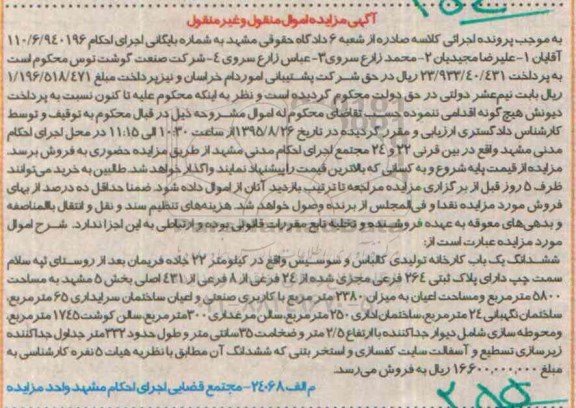 آگهی مزایده اموال منقول و غیر منقول
به موجب پرونده اجرائی کلاسه صادره از شعبه ۶ دادگاه حقوقی مشهد به شماره بایگانی اجرای احکام ۱۱۰/۶/۹۴۰۱۹۶
آقایان ۱- علیرضا مجیدیان ۲- محمد زارع سروی ۳- عباس زارع سروی ۴- شرکت صنعت گوشت توس محکوم است
به پرداخت ۲۳/۹۳۳/۴۰/۴۳۱ ریال در حق شرکت پشتیبانی امور دام خراسان و نیز پرداخت مبلغ ۱/۱۹۶/۵۱۸/۴۷۱
ریال بابت نیم عشر دولتی در حق دولت محکوم گردیده است و نظر به اینکه محکوم علیه تا کنون نسبت به پرداخت
دیونش هیچ گونه اقدامی ننموده حسب تقاضای محکوم له اموال مشروحه ذیل در قبال محکوم به توقیف و توسط
کارشناس دادگستری ارزیابی و مقرر گردیده در تاریخ ۱۳۹۵/۸/۲۶ از ساعت ۱۰:۳۰ الی ۱۱:۱۵ در محل اجرای احکام
مدنی مشهد واقع در بین قرنی ۲۲ و ۲۴ مجتمع اجرای احکام مدنی مشهد از طریق مزایده حضوری به فروش برسد.
مزایده از قیمت پایه شروع و به کسانی که بالاترین قیمت را پیشنهاد نمایند واگذار خواهد شد. طالبین به خرید می توانند
ظرف ۵ روز قبل از برگزاری مزایده مراجعه تا ترتیب بازدید آنان از اموال داده شود. ضمنا حداقل ده درصد از بهای
فروش مورد مزایده نقدا و فی المجلس از برنده وصول خواهد شد. هزینه های تنظیم سند و نقل و انتقال بالمناصفه
و بدهی های معوقه به عهده فروشنده و تخلیه تابع مقررات قانونی بوده و ارتباطی به این اجرا ندارد. شرح اموال
مورد مزایده عبارت است از:
ششدانگ یک باب کارخانه تولیدی کالباس و سوسیس واقع در کیلومتر ۲۲ جاده فریمان بعد از روستای تپه سلام
سمت چپ دارای پلاک ثبتی ۲۶۴ فرعی مجزی شده از ۲۴ فرعی از ۸ فرعی از ۴۳۱ اصلی بخش ۵ مشهد به مساحت
۵۸۰۰ متر مربع و مساحت اعیان به میزان ۲۳۸۰ متر مربع با کاربری صنعتی و اعیان ساختمان سرایداری ۶۵ متر مربع،
ساختمان نگهبانی ۲۴ متر مربع، ساختمان اداری ۲۵۰ متر مربع، سالن مرغداری ۳۰۰ متر مربع، سالن گوشت ۱۷۴۵ متر مربع،
و محوطه سازی شامل دیوار جداکننده با ارتفاع ۲/۵ متر و ضخامت ۳۵ سانتی متر و طول حدود ۳۳۲ متر جداول جداکننده
زیرسازی تسطیع و آسفالت سایت کفسازی و استخر بتنی که ششدانگ آن مطابق با نظریه هیات ۵ نفره کارشناسی به
مبلغ ۱۶،۶۰۰،۰۰۰،۰۰۰ ریال به فروش می رسد.
م الف ۲۴۰۶۸ - مجتمع قضایی اجرای احکام مشهد واحد مزایده